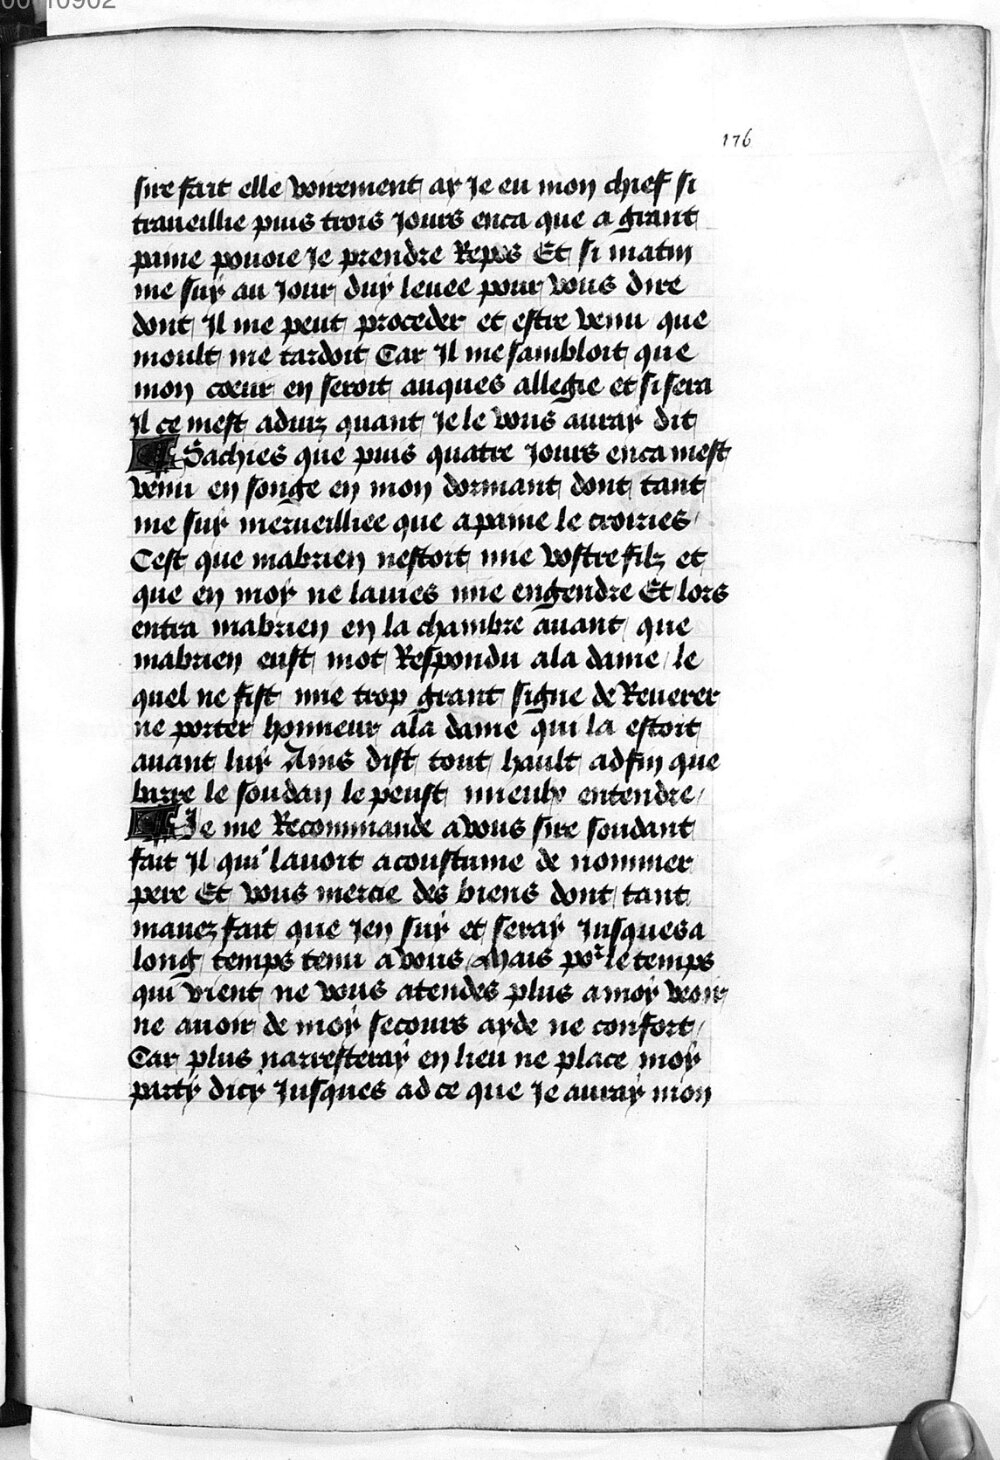 176
sire fait elle voirement ay Je eu mon chief si
traueillie puis trois Jours enca que a grant
paine pouoie Je prendre Repos Et si matin
me suy au Jour duy leuee pour vous dire
dont Il me peut proceder et estre venu que
moult me tardoit Car Il me sambloit que
mon coeur en seroit auques allegie et si sera
Il ce mest aduiz quant Je le vous auray dit
Sachies que puis quatre Jours enca mest
venu en songe en mon dormant dont tant
me suy merueilliee que apaine le croiries /
Cest que mabrien nestoit mie vostre filz et
que en moy ne lauies mie engendre Et lors
entra mabrien en la chambre auant que
mabrien eust mot Respondu ala dame / le
quel ne fist mie trop grant signe de Reuerer
ne porter honneur ala dame qui la estoit
auant luy Ains dist tout hault adfin que
barre le soudan le peust mieulx entendre /
Je me Recommande a vous sire soudant
fait Il qui lauoit acoustume de nommer
pere Et vous mercie des biens dont tant
mauez fait que Jen suy et seray Jusques a
long temps tenu a vous / Mais por le temps
qui vient ne vous atendes plus a moy veoir
ne auoir de moy secours ayde ne confort /
Car plus narresteray en lieu ne place moy
party dicy Jusques ad ce que Je auray mon